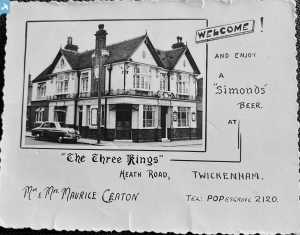 WELCOME!
AND ENJOY
A
"Simonds"
BEER.
AT
"The Three Kings"
HEATH ROAD,
TWICKENHAM.
MR & MRS MAURICE
TEL: POPESGROVE 2120.